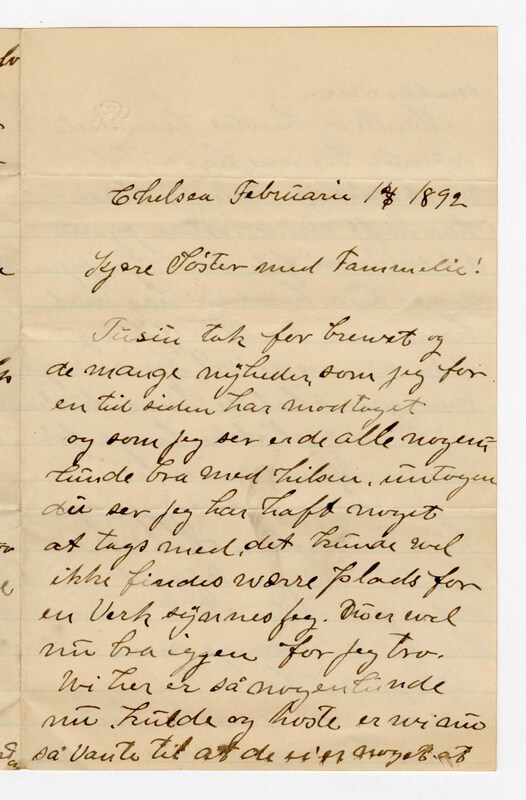 Chelsea Februarie 14 1892
Kjære Søster med Fammelie!
Tusin tak for brewet og
de mange nyheder, som jeg for
en tid siden har modtaget
og som jeg ser er de alle nogen-
lunde bra med hilsen, untagen
du ser jeg har haft noget
at tags med, det kunde wel
ikke findes wærre plads for
en Verk synnes jeg. Du er wel
nu bra iggen for jeg tro.
Wi her er så nogenlunde
nu, kulde og hoste er wi nu
så vante til at de noget at